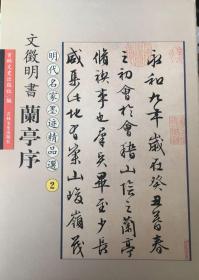 永和九年歲在癸丑暮春
之初會於會稽山陰之蘭亭
脩禊事也群賢畢至少長
咸集此地有崇山峻嶺茂
明代名家墨迹精品選
2
文徵明書 蘭亭序
吉林文史出版社